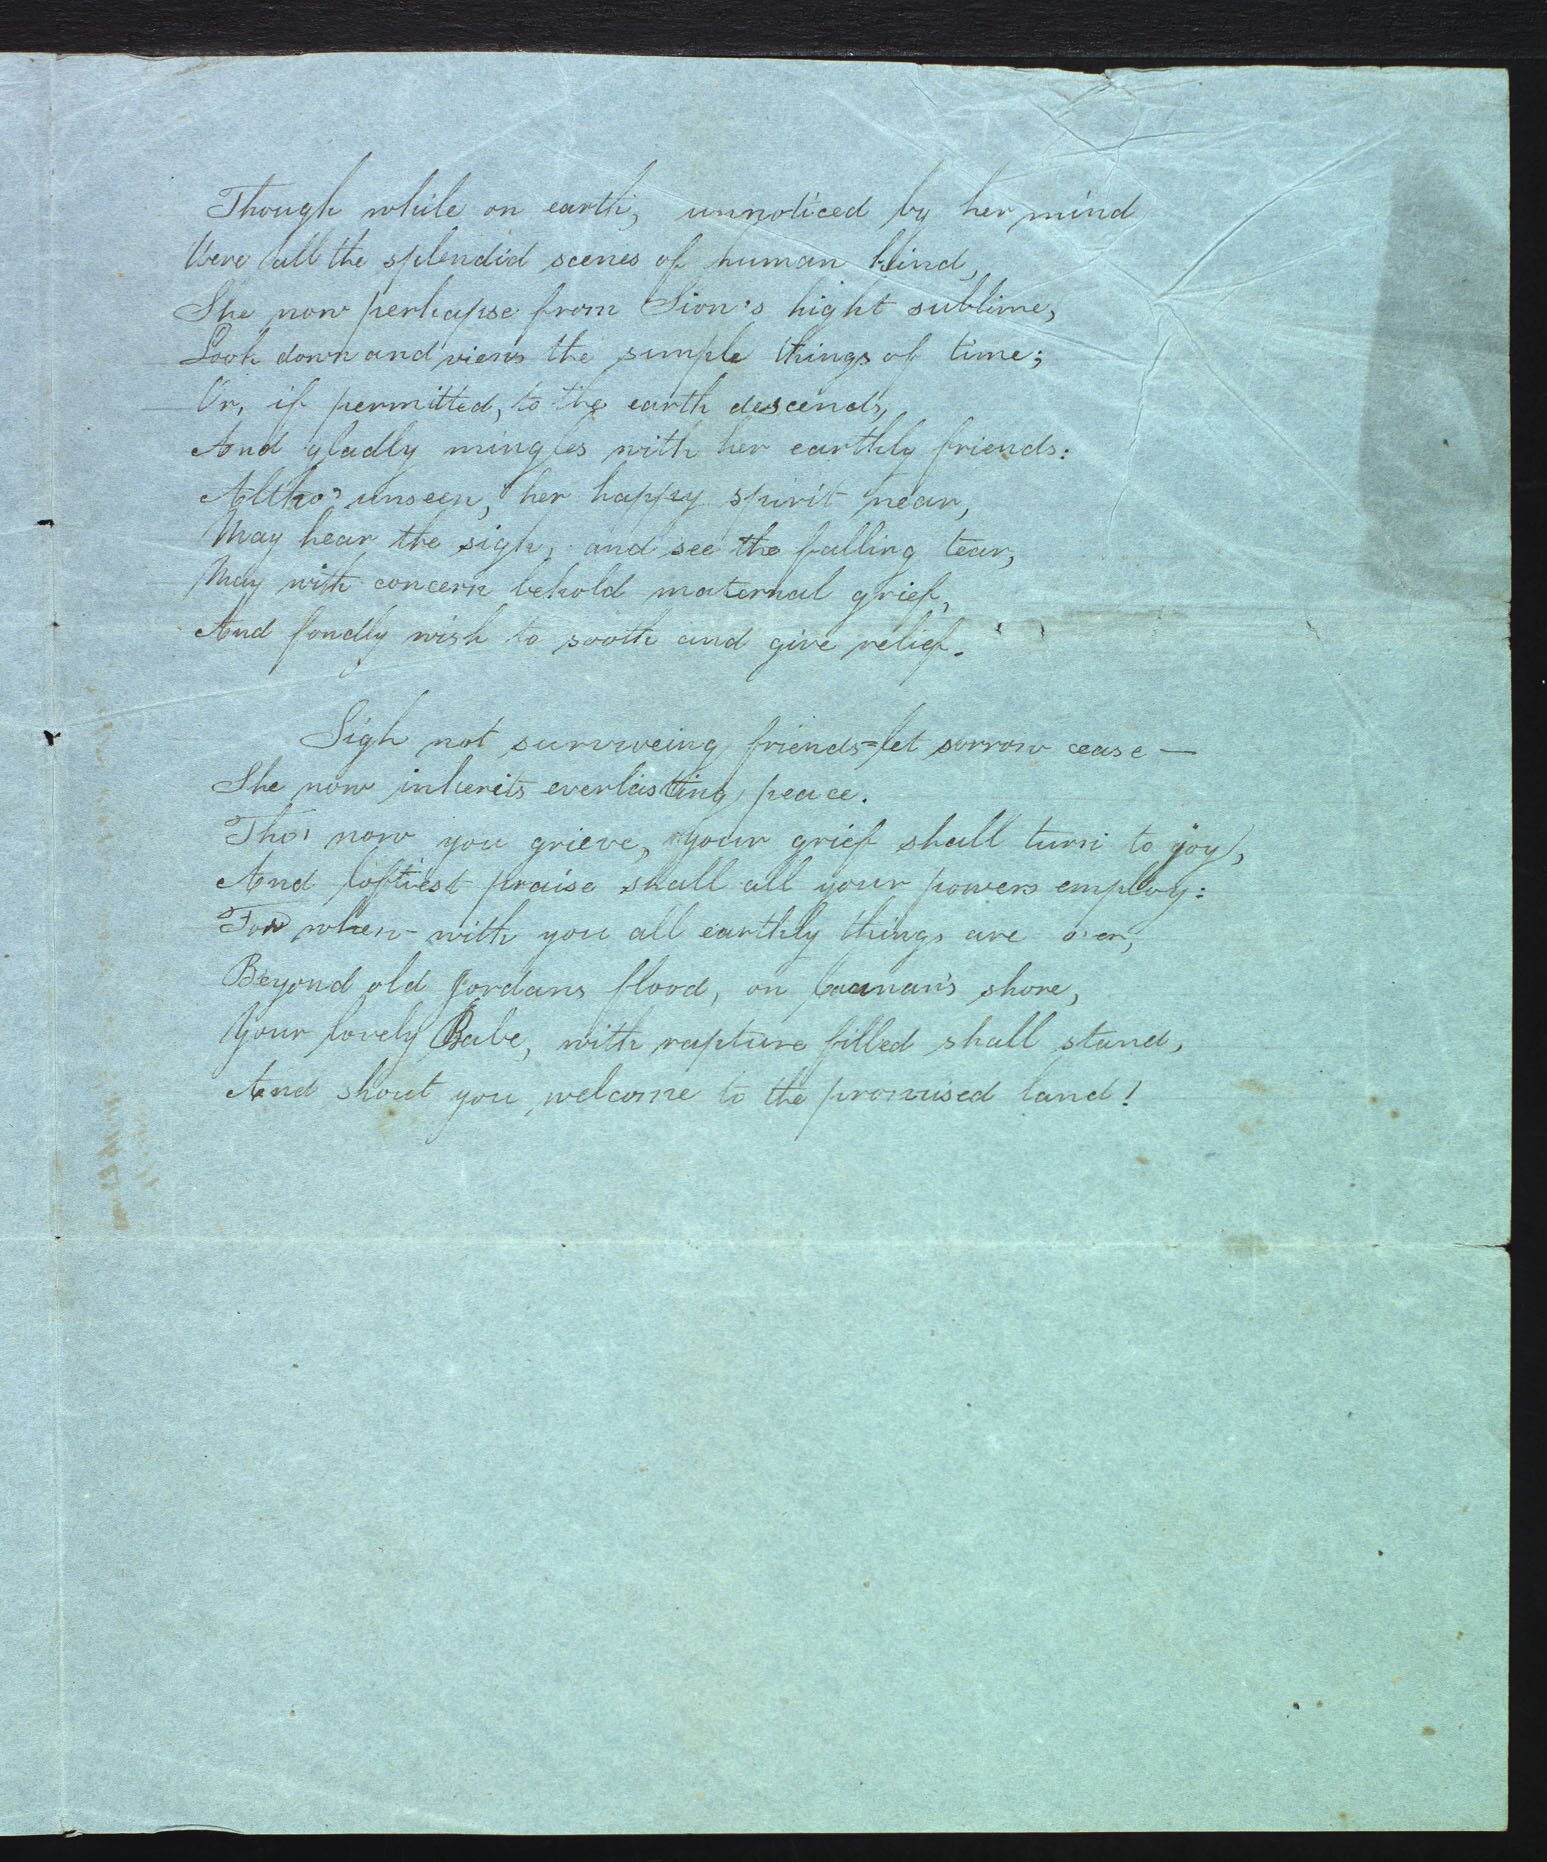 Though while on earth, unnoticed by her mind
Were all the splendid scenes of human kind,
She now perhapse from Sion's hight sublime,
Look down and views the simple things of time;
Or, if permitted, to the earth descends,
And gladly mingles with her earthly friends:
Altho' unseen, her happy spirit near,
May hear the sigh, and see the falling tear,
May with concern behold maternal grief,
And fondly wish to sooth and give relief.
Sigh not surviveing friends=let sorrow cease —
She now inherits everlasting peace.
Tho' now you grieve, your grief shall turn to joy,
And loftiest praise shall all your powers employ:
For when with you all earthly things are o'er,
Beyond old Jordans flood, on Caanan's shore,
Your lovely Babe, with rapture filled shall stand,
And shout you welcome to the promised land!